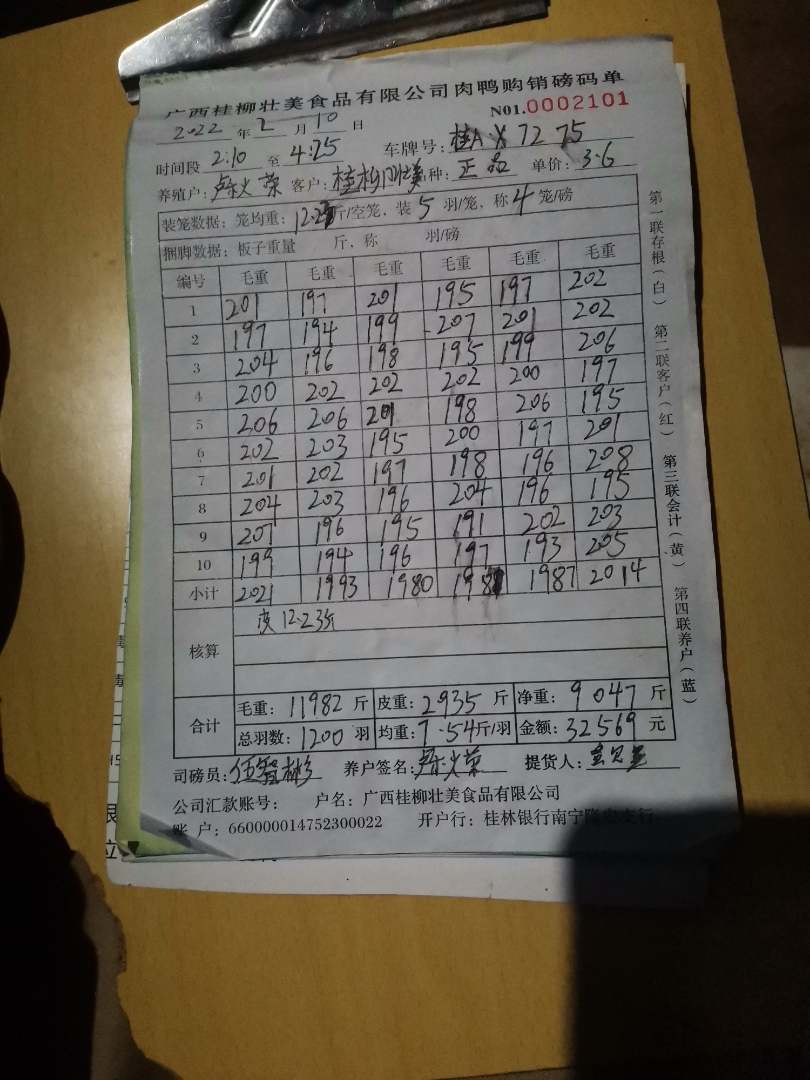 广西桂柳壮美食品有限公司肉鸭购销磅码单
NO1.0002101
2022 年 2 月 10 日
时间段 2:10 至 4:25 车牌号: 桂A X7275
养殖户: 卢火荣 客户: 桂柳壮美 种: 正品 单价: 3.6
装笼数据: 笼均重: 12.23斤/空笼, 装 5 羽/笼, 称 4 笼/磅
捆脚数据: 板子重量 斤, 称 羽/磅
编号 毛重 毛重 毛重 毛重 毛重 毛重
1 201 197 201 195 197 202
2 197 194 199 207 201 202
3 204 196 198 195 199 206
4 200 202 202 202 200 197
5 206 206 201 198 206 195
6 202 203 195 200 197 201
7 201 202 197 198 196 208
8 204 203 196 204 196 195
9 207 196 195 191 202 203
10 199 194 196 197 193 205
小计 2021 1993 1980 1987 1987 2014
核算 皮12.23斤
合计 毛重: 11982 斤 皮重: 2935 斤 净重: 9047 斤
总羽数: 1200 羽 均重: 7.54斤/羽 金额: 32569 元
司磅员: 伍智彬 养户签名: 卢火荣 提货人:
公司汇款账号: 户名: 广西桂柳壮美食品有限公司
账 户: 660000014752300022 开户行: 桂林银行南宁隆安支行
第一联存根(白) 第二联客户(红) 第三联会计(黄) 第四联养户(蓝)